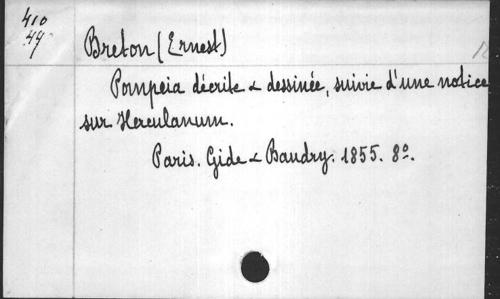 410
47
Breton (Ernest)
Pompeia décrite & dessinée, suivie d'une notice
sur Herculanum.
Paris. Gide & Baudry. 1855. 8º.